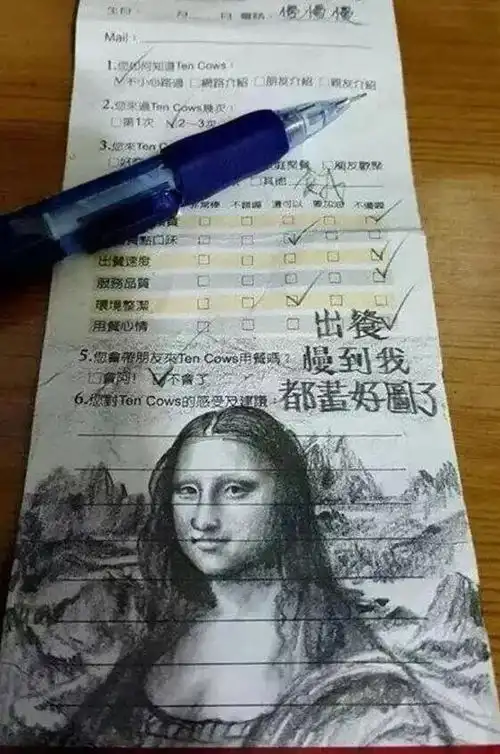 月 日 電話： 慢慢慢
Mail：
1.您如何知道Ten Cows：
不小心路過 網路介紹 朋友介紹 親友介紹
2.您來過Ten Cows幾次：
第1次 2~3次
3.您來Ten
朋友歡聚
其他
不錯喔 還可以 要加油 不優喔
點口味
出餐速度
服務品質
環境整潔
用餐心情
出餐
慢到我
都畫好圖了
5.您會帶朋友來Ten Cows用餐嗎？
會阿！ 不會了
6.您對Ten Cows的感受及建議：